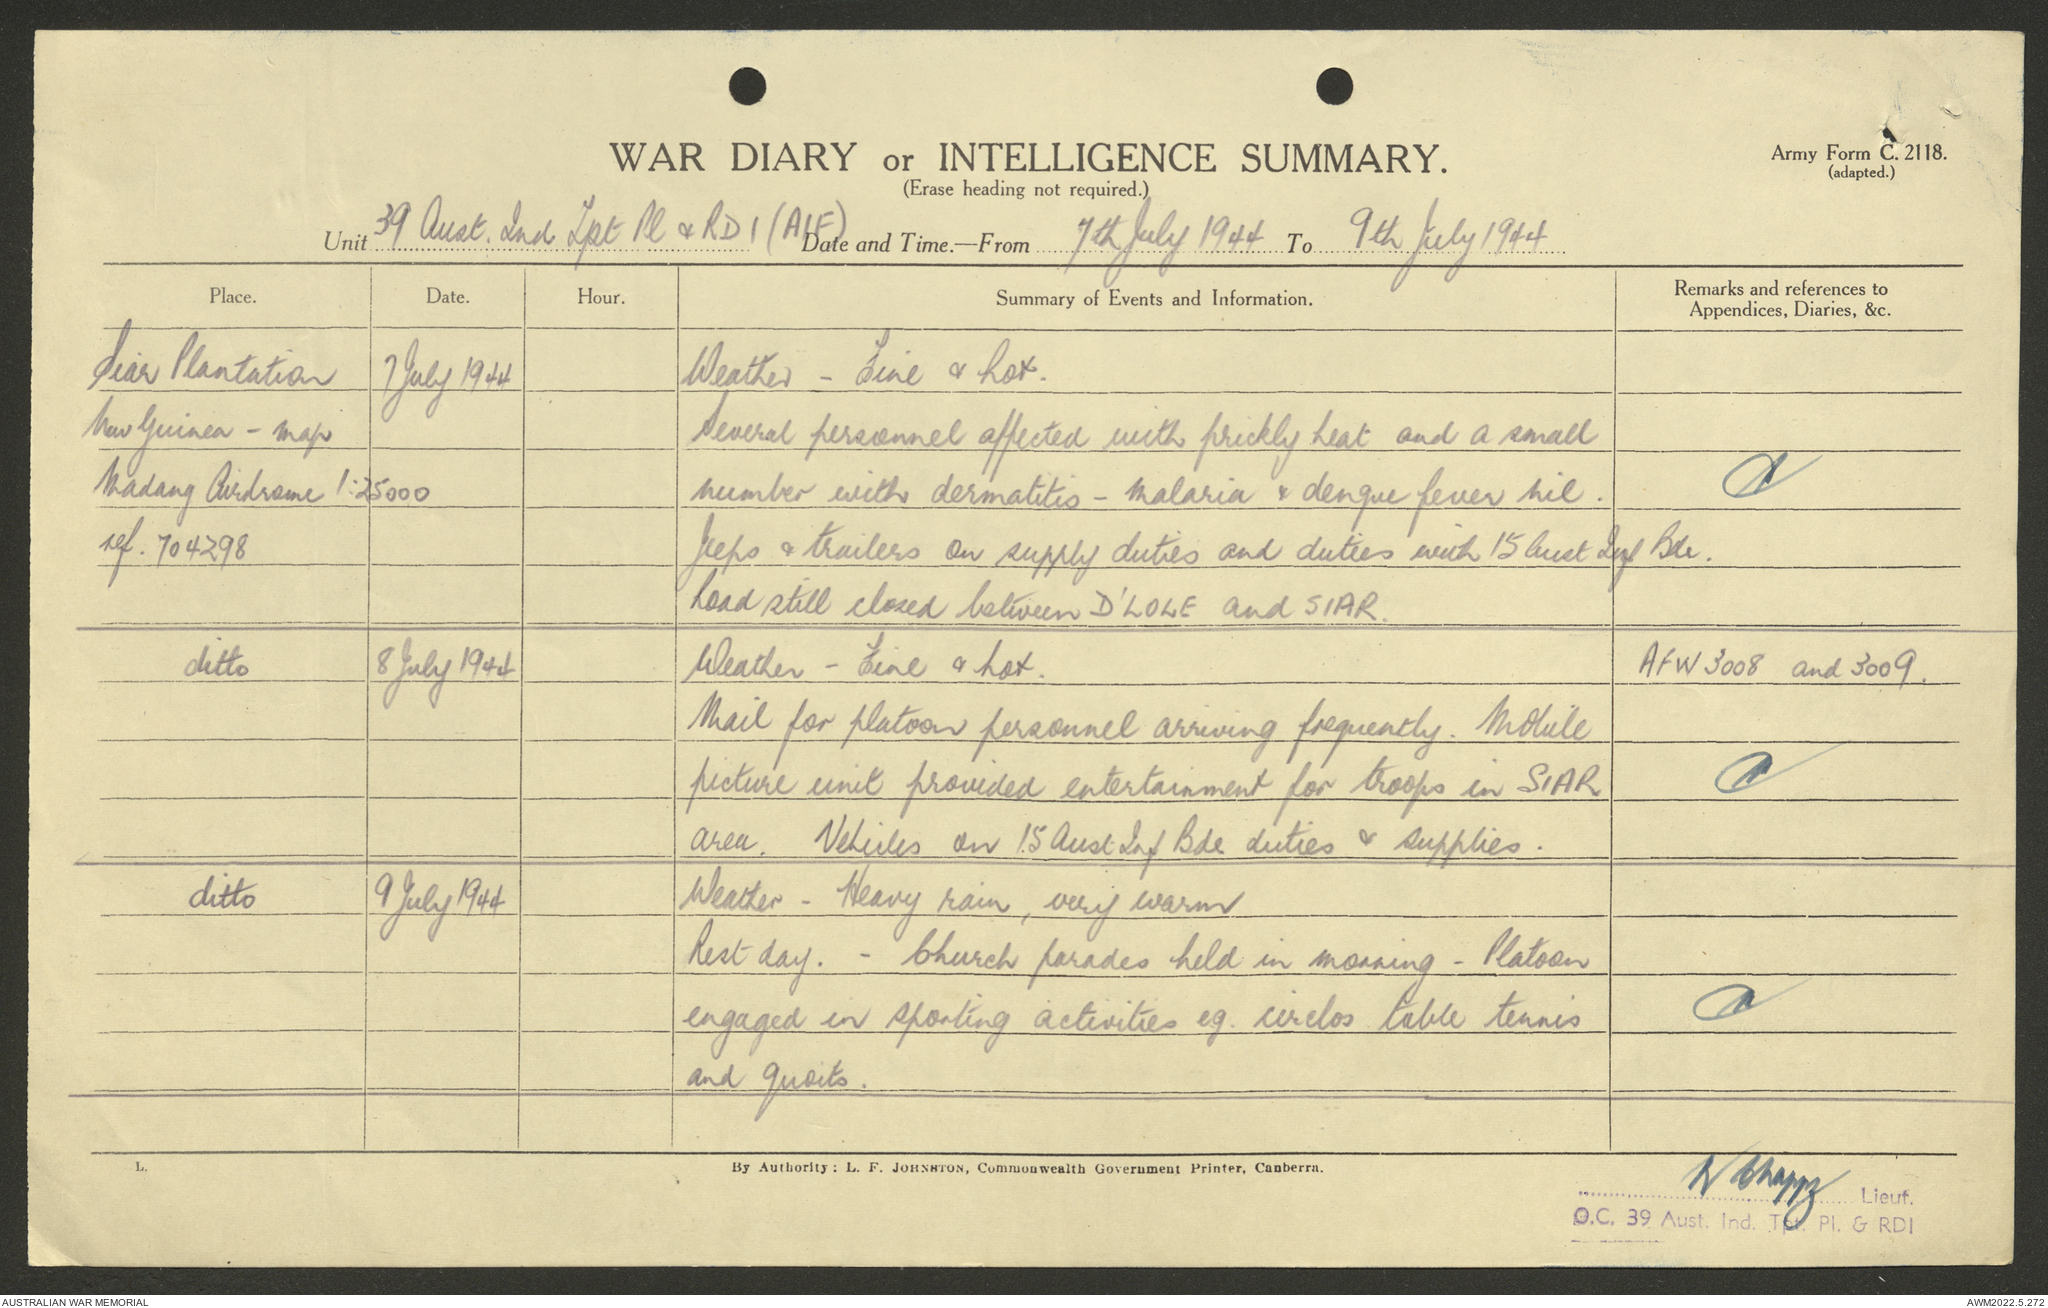 WAR DIARY or INTELLIGENCE SUMMARY.
(Erase heading not required.)
Army Form C. 2118.
(adapted.)
Unit 39 Aust. Ind Tpt Pl & RD 1 (AIF) Date and Time.—From 7th July 1944 To 9th July 1944
Place. Date. Hour. Summary of Events and Information. Remarks and references to
Appendices, Diaries, &c.
Siar Plantation 7 July 1944 Weather - Fine & hot.
New Guinea - map Several personnel affected with prickly heat and a small
Madang Airdrome 1:25000 number with dermatitis - malaria & dengue fever nil.
ref. 704298 Jeeps & trailers on supply duties and duties with 15 Aust Inf Bde.
Road still closed between D'LOLE and SIAR.
ditto 8 July 1944 Weather - Fine & hot. AFW 3008 and 3009.
Mail for platoon personnel arriving frequently. Mobile
picture unit provided entertainment for troops in SIAR
area. Vehicles on 15 Aust Inf Bde duties & supplies.
ditto 9 July 1944 Weather - Heavy rain, very warm
Rest day. - Church parades held in morning - Platoon
engaged in sporting activities eg. circlos table tennis
and quoits.
L.
By Authority: L. F. JOHNSTON, Commonwealth Government Printer, Canberra.
Lieut.
O.C. 39 Aust. Ind. Tpt. Pl. & RDI
AUSTRALIAN WAR MEMORIAL
AWM2022.5.272